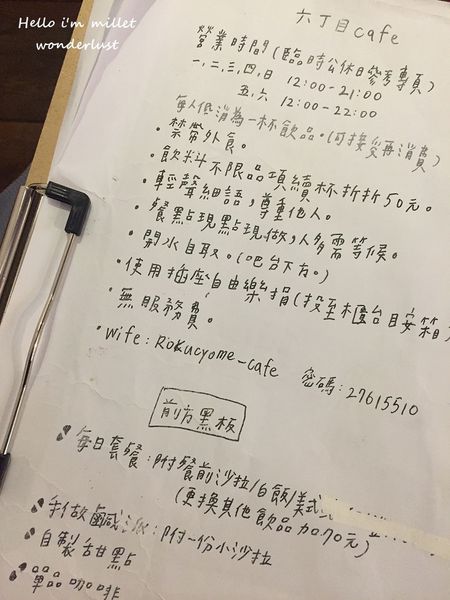 Hello i'm millet
wonderlust
六丁目cafe
營業時間(臨時公休日參考專頁)
一、二、三、四、日 12:00-21:00
五、六 12:00-22:00
每人低消為一杯飲品。(可接受再消費)
·禁帶外食。
·飲料不限品項續杯折折50元。
·輕聲細語,尊重他人。
·餐點現點現做,人多需等候。
·開水自取。(吧台下方。)
·使用插座自由樂捐(投至櫃台目安箱)
·無服務費。
·wife:Rokucyome-cafe 密碼:27615510
前方黑板
每日套餐:附餐前沙拉/白飯/美式
(更換其他飲品加70元)
手做鹹派:附一份小沙拉
自製甜點
單品咖啡